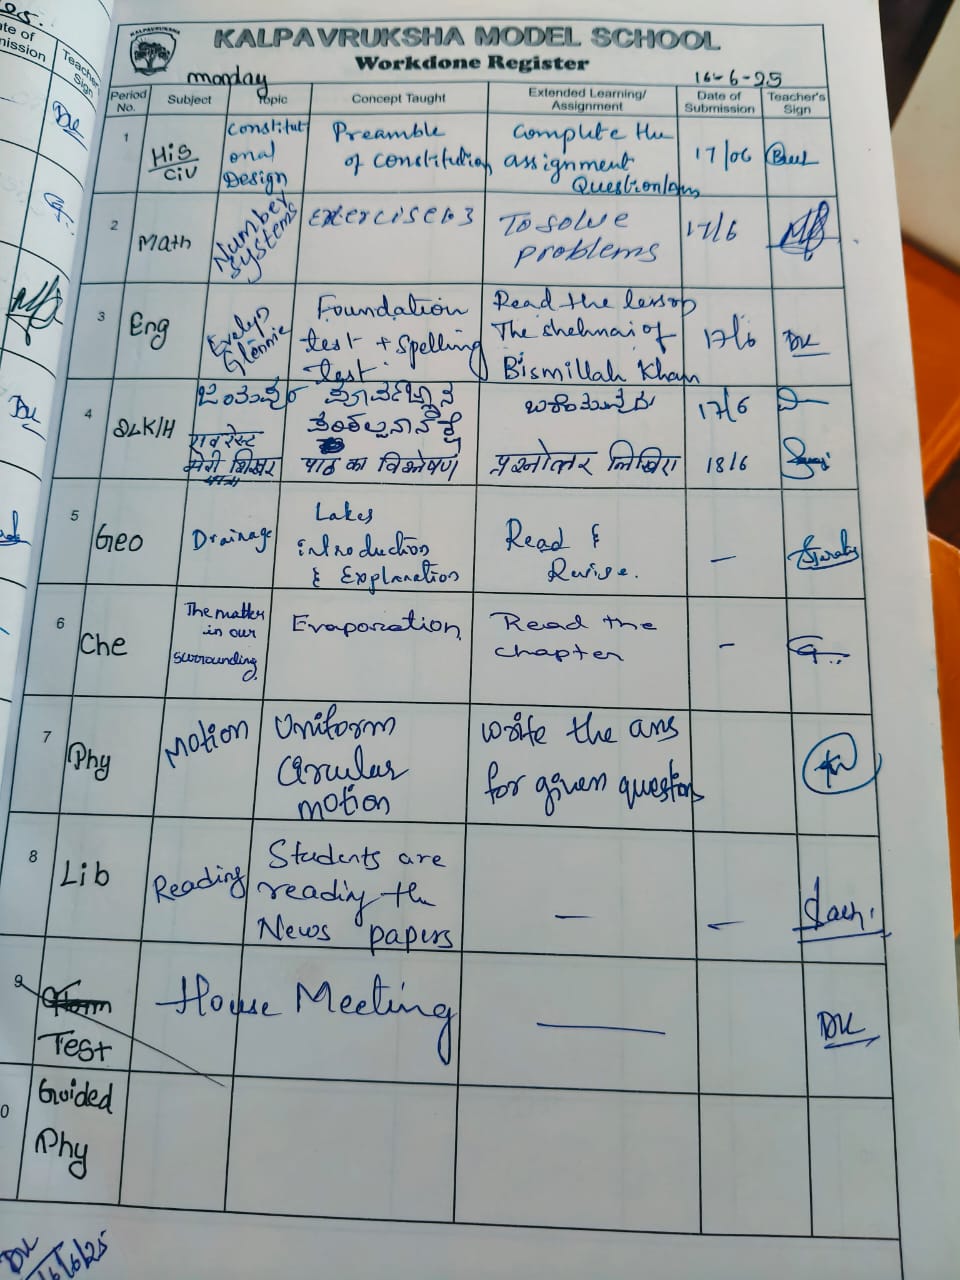 KALPAVRUKSHA MODEL SCHOOL
Workdone Register
monday
16-6-25
Period No. Subject Topic Concept Taught Extended Learning/ Assignment Date of Submission Teacher's Sign
1 His/Civ Constitutional Design Preamble of constitution Complete the assignment Question/ans 17/06
2 Math Number systems Exercise 1.3 To solve problems 17/6
3 Eng Evelyn Glennie Foundation test + Spelling test. Read the lesson The shehnai of Bismillah Khan 17/6 DK
4 2LK/H 17/6
एवरेस्ट मेरी शिखर यात्रा पाठ का विश्लेषण प्रश्नोत्तर लिखिए 18/6
5 Geo Drainage Lakes introduction & Explanation Read & Revise. –
6 Che The matter in our surrounding. Evaporation Read the chapter –
7 Phy Motion Uniform Circular motion write the ans for given questions
8 Lib Reading Students are reading the News papers – –
9 Test House Meeting — DK
0 Guided Phy
DK
16/6/25